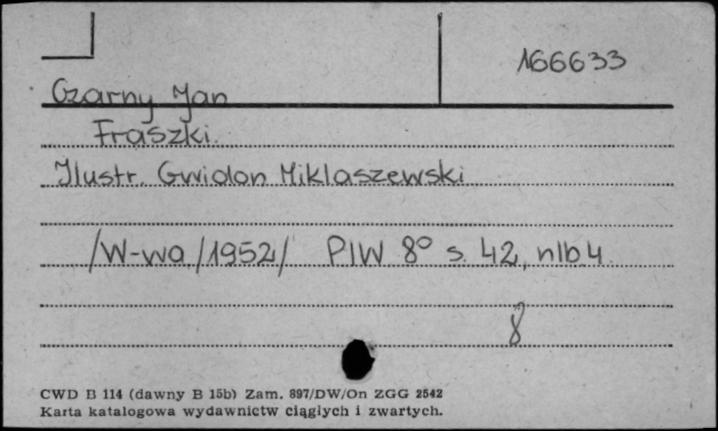 166633
Czarny Jan
Fraszki.
Ilustr. Gwidon Miklaszewski
/W-wa/1952/ PIW 8° s. 42, nlb.4.
8
CWD B 114 (dawny B 15b) Zam. 897/DW/On ZGG 2542
Karta katalogowa wydawnictw ciągłych i zwartych.